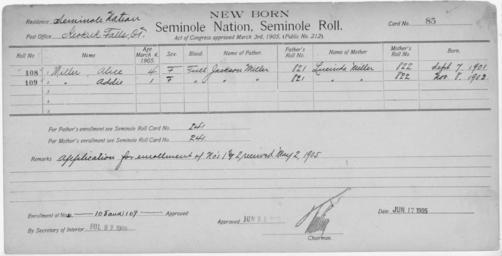 NEW BORN
Residence Seminole Nation
Seminole Nation, Seminole Roll.
Card No. 85
Post Office Keokuk Falls, O.T.
Act of Congress approved March 3rd, 1905. (Public No. 212).
Roll No Name Age March 4, 1905. Sex. Blood. Name of Father. Father's Roll No. Name of Mother Mother's Roll No. Born.
108 Miller, Alice 4 F Full Jackson Miller 821 Lucinda Miller 822 Sept 7, 1901
109 " Addie 1 F " " " 821 " " 822 Nov. 8, 1902
For Father's enrollment see Seminole Roll Card No. 241
For Mother's enrollment see Seminole Roll Card No. 241
Remarks Application for enrollment of Nos 1 & 2 received May 2, 1905
Enrollment of Nos 108 and 109 Approved
Approved JUN
Date JUN 17 1905
By Secretary of Interior JUL 22 1905
Chairman.